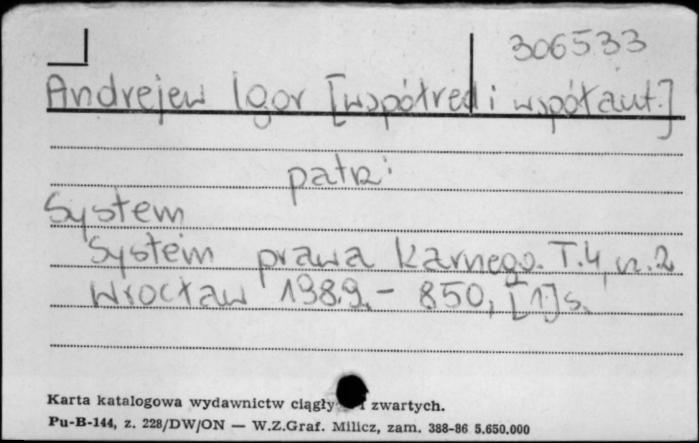 306533
Andrejew Igor [współred i współaut.]
patrz:
System
System prawa karnego. T.4, cz.2
Wrocław 1989. - 850, [1] s.
Karta katalogowa wydawnictw ciągły i zwartych.
Pu-B-144, z. 228/DW/ON — W.Z.Graf. Milicz, zam. 388-86 5.650.000